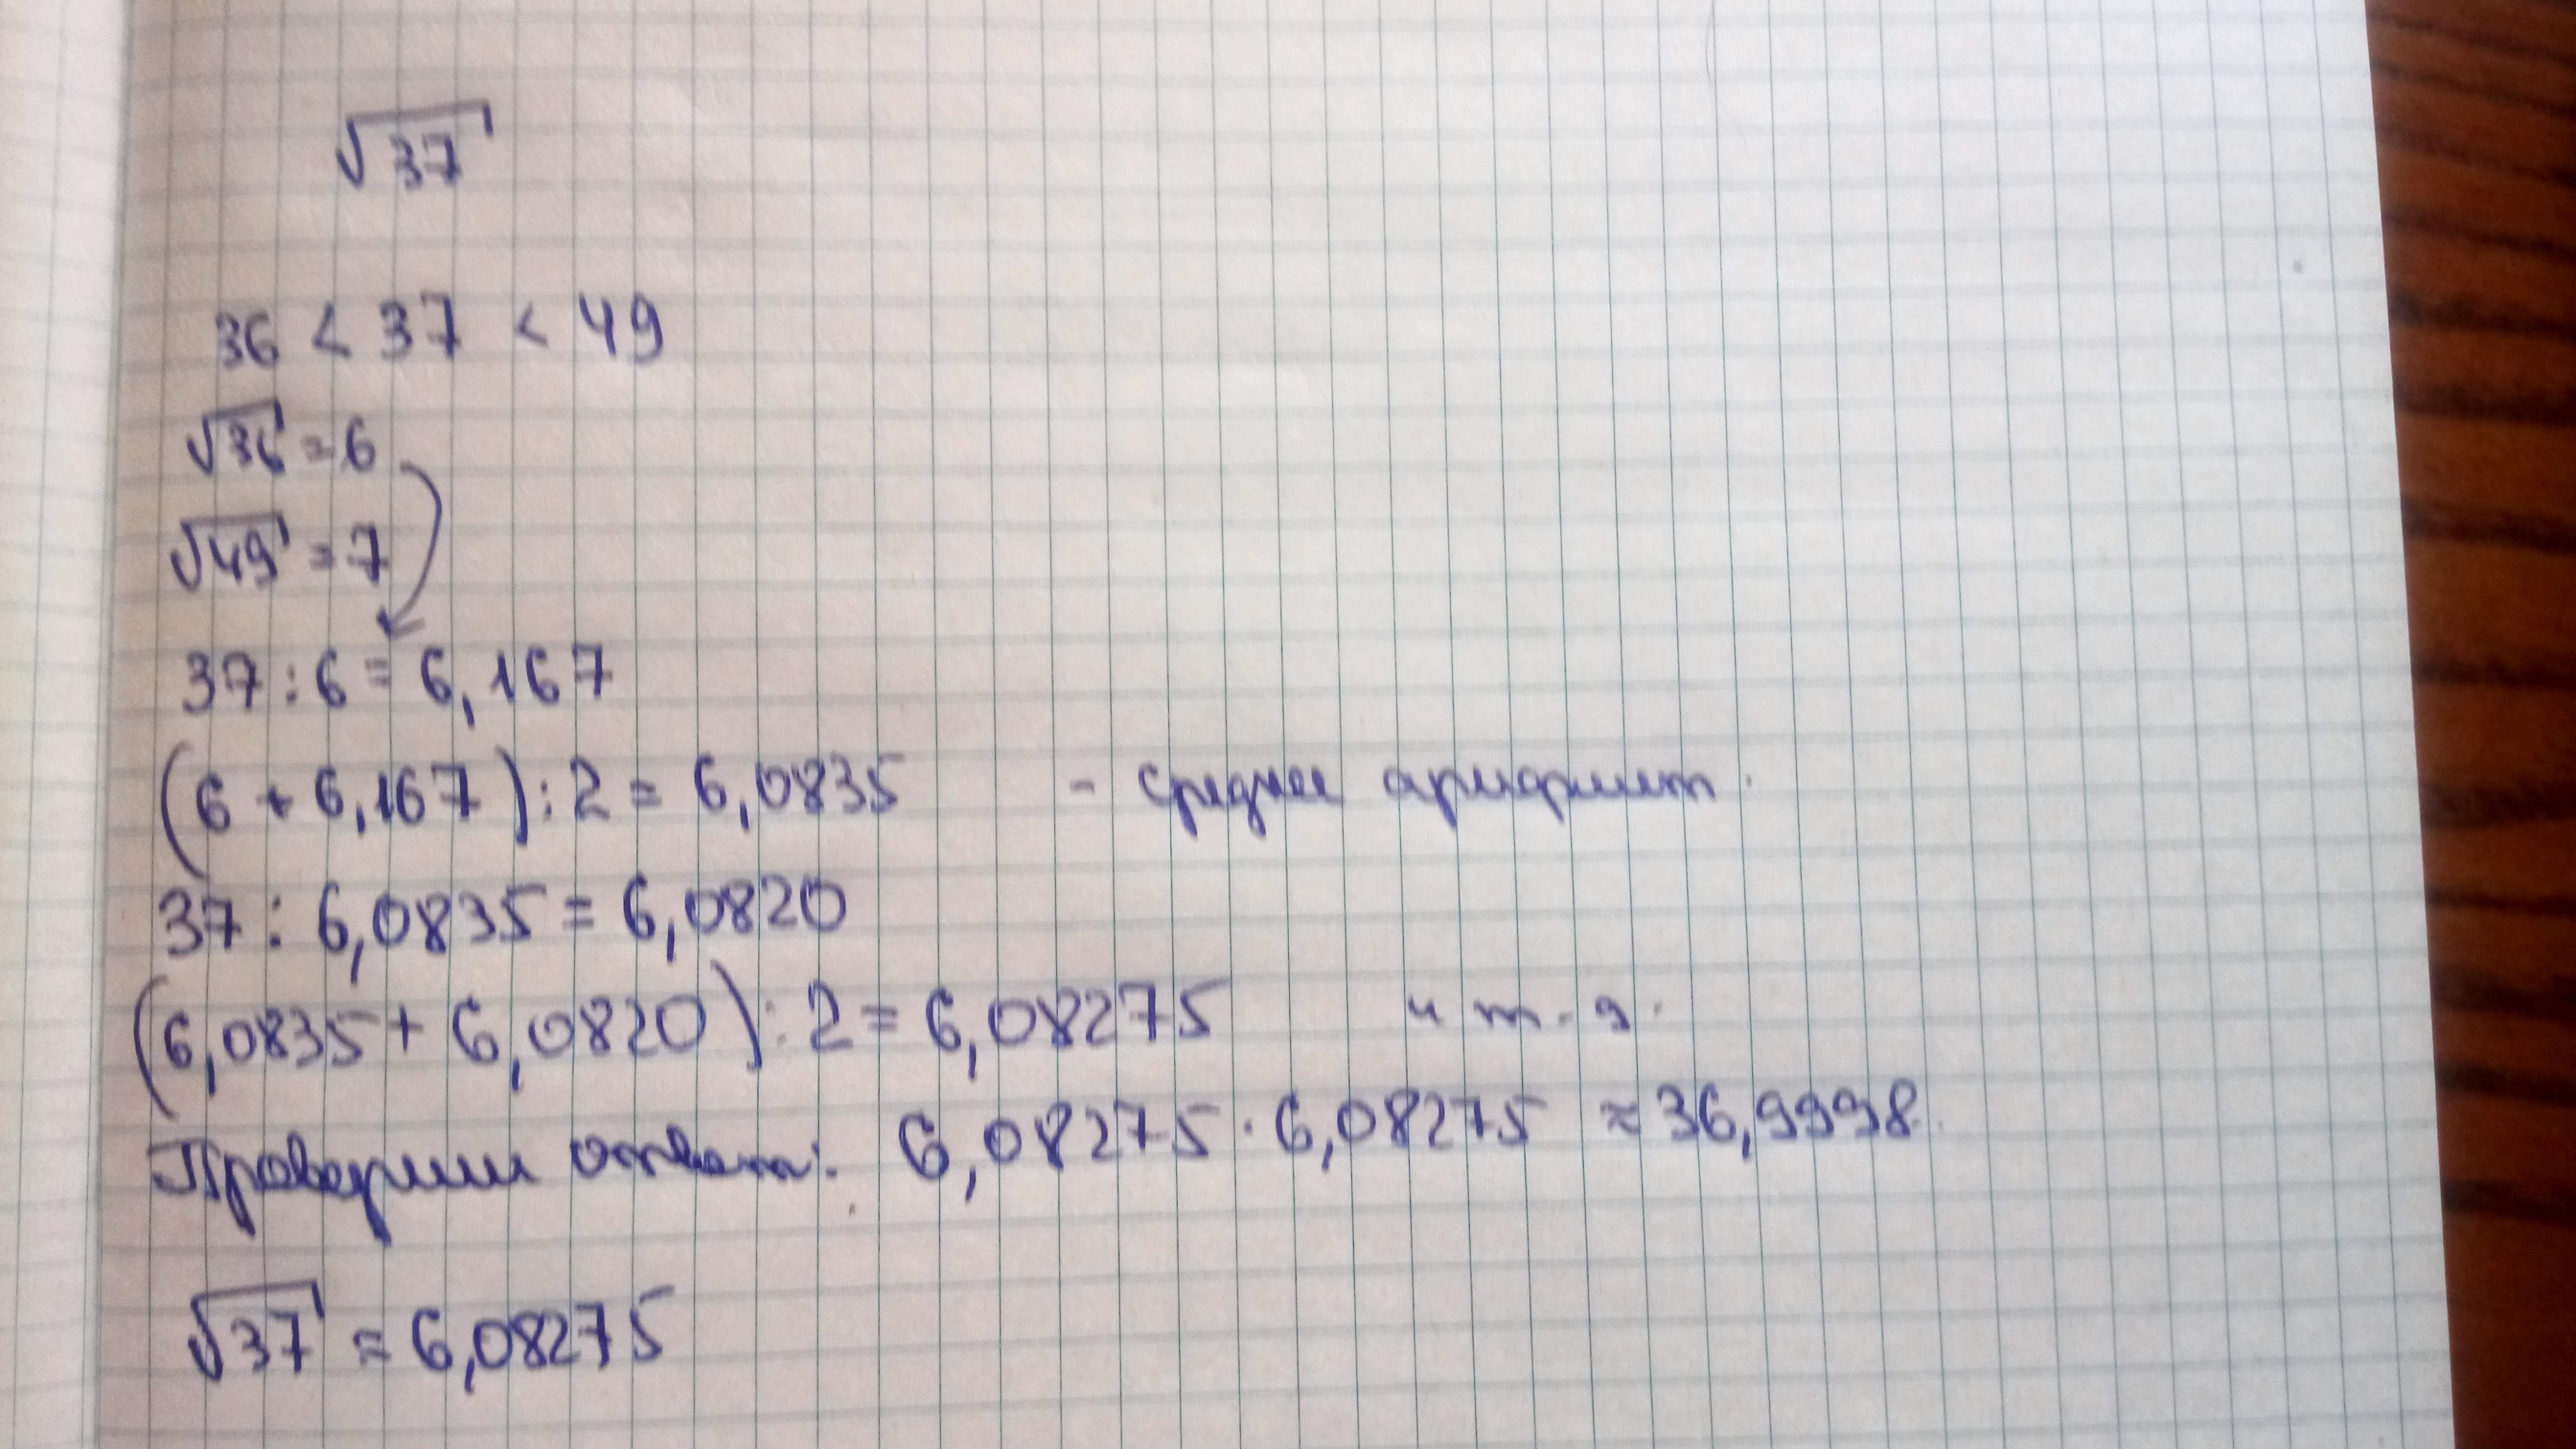 √37
36 < 37 < 49
√36 = 6
√49 = 7
37 : 6 = 6,167
(6 + 6,167) : 2 = 6,0835 - среднее арифмет.
37 : 6,0835 = 6,0820
(6,0835 + 6,0820) : 2 = 6,08275 и т. д.
Проверим ответ: 6,08275 · 6,08275 ≈ 36,9998
√37 ≈ 6,08275